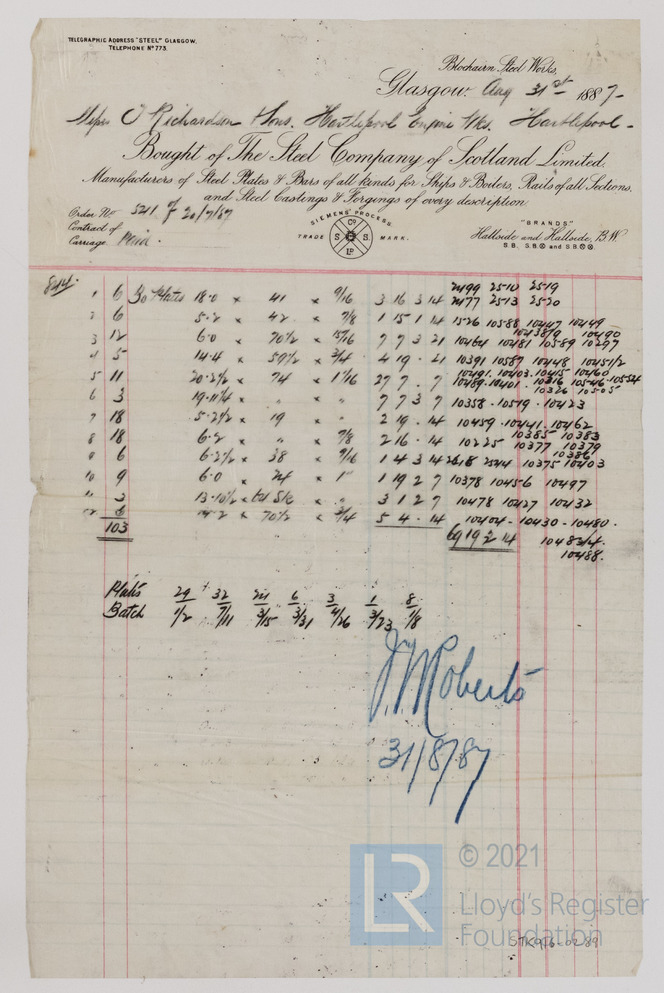 TELEGRAPHIC ADDRESS "STEEL" GLASGOW.
TELEPHONE Nº 773.
Blochairn Steel Works,
Glasgow. Aug 31st 1887-
Messrs T Richardson & Sons. Hartlepool Engine Wks. Hartlepool-
Bought of The Steel Company of Scotland Limited.
Manufacturers of Steel Plates & Bars of all kinds for Ships & Boilers, Rails of all Sections,
and Steel Castings & Forgings of every description
Order No 5211 of 20/7/87
Contract of
Carriage Paid.
SIEMENS' PROCESS.
TRADE MARK.
Cº S S Lº
"BRANDS"
Hallside and Hallside, B.W.
S.B. S.B. and S.B.
2199 2510 2519
1 6 Bo Plates 18.0 × 41 × 9/16 3 16 3 14 2177 2513 2520
2 6 5.2 × 42 × 7/8 1 15 1 14 1526 10588 10447 10449
3 12 6.0 × 70½ × 15/16 7 7 3 21 10464 10481 10589 10297
4 5 14.4 × 59½ × 3/4 4 19 . 21 10391 10587 10448 10451/2
10491. 10403. 10415 10460
5 11 20.2½ × 74 × 1 1/16 27 7 . 7 10489. 10401. 10316 10546. 10554
10326 10505
6 3 19.11¼ × " × " 7 7 3 7 10358. 10519. 10423
7 18 5.2½ × 19 " 2 19 . 14 10459. 10441. 10462
10385 10383
8 18 6.2 × " × 7/8 2 16 . 14 10225 10377 10379
10386
9 6 6.2½ × 38 × 9/16 1 4 3 14 2618 2544 10375 10403
10 9 6.0 × 24 × 1" 1 19 2 7 10378 10456 10497
11 3 13.10½ × Sk × " 3 1 2 7 10478 10427 10432
12 6 × 70½ × 3/4 5 4 . 14 10404- 10430- 10480.
103 69 19 2 14 10483/4.
10488.
Plates 29 32 24 6 3 1 8
Batch 1/2 7/11 3/15 3/31 4/26 3/23 1/8
J. Roberts
31/8/87
© 2021
LR
Lloyd's Register
Foundation
STK956-0289